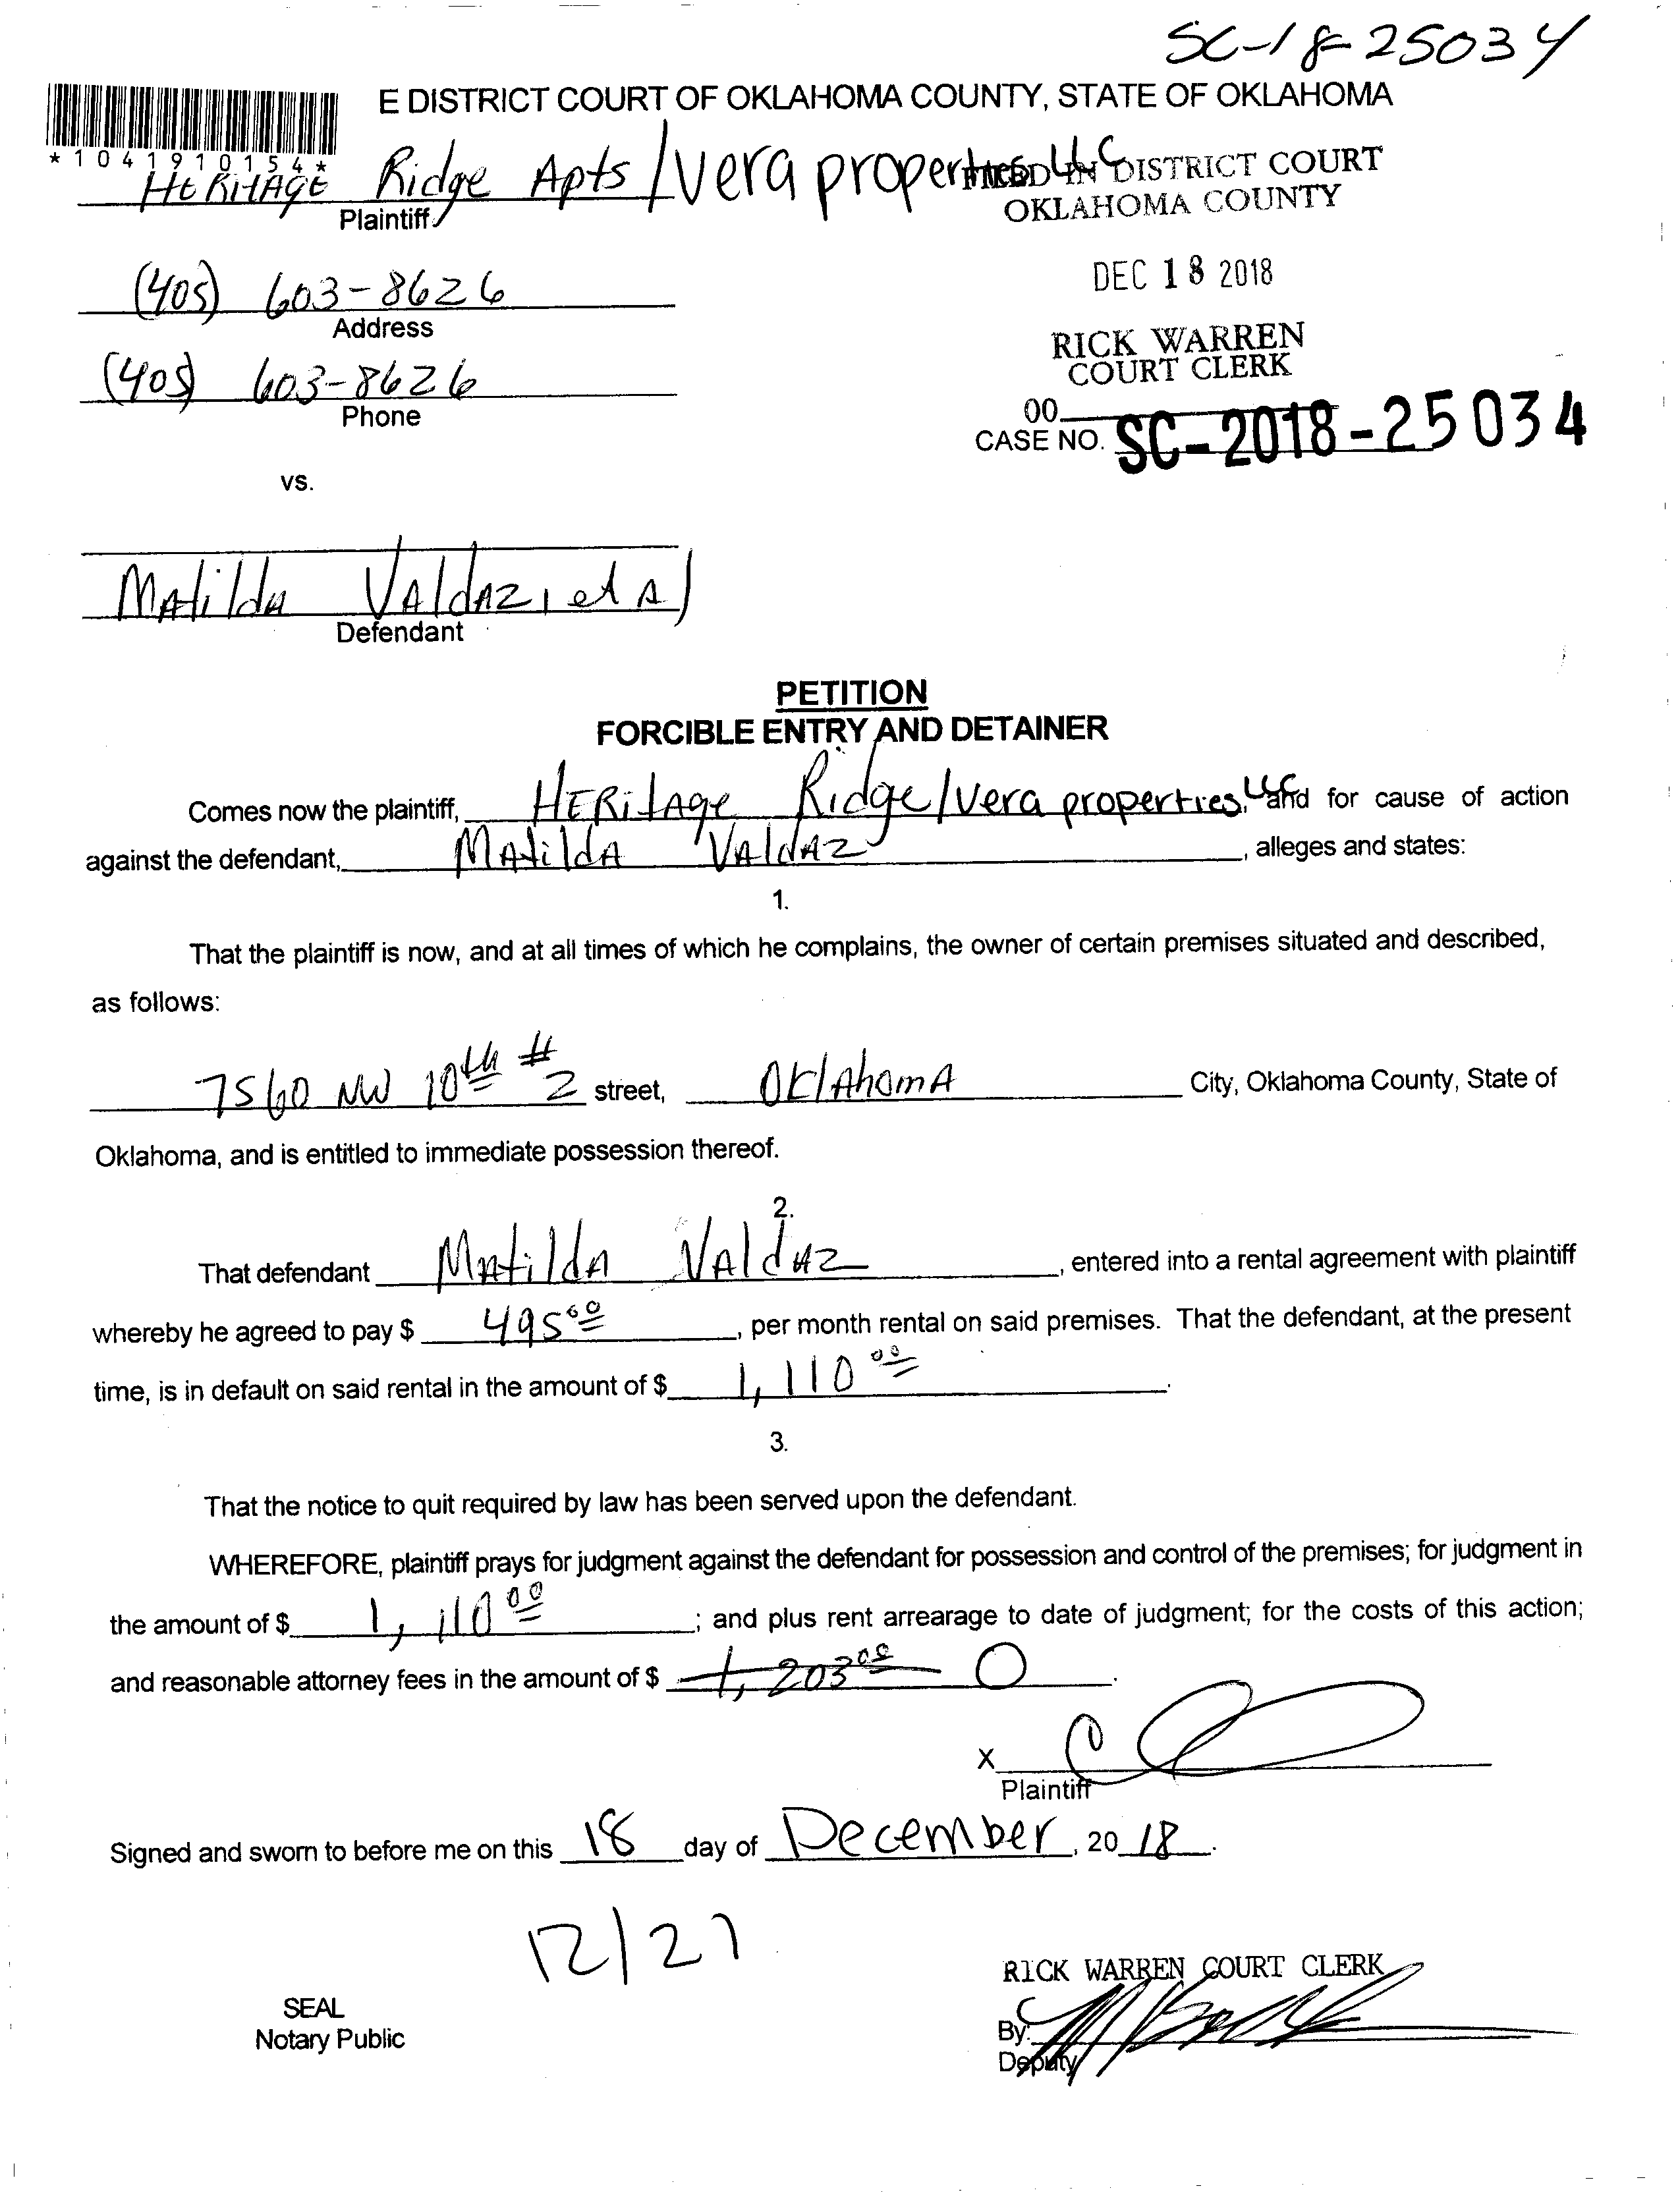 SC-18-25034
E DISTRICT COURT OF OKLAHOMA COUNTY, STATE OF OKLAHOMA
*1041910154*
HERITAGE Ridge Apts/vera properties LLC
Plaintiff
FILED IN DISTRICT COURT
OKLAHOMA COUNTY
(405) 603-8626
Address
DEC 18 2018
(405) 603-8626
Phone
RICK WARREN
COURT CLERK
00
CASE NO. SC-2018-25034
vs.
Matilda Valdaz, et al
Defendant
PETITION
FORCIBLE ENTRY AND DETAINER
Comes now the plaintiff, HERitAge Ridge/vera properties, LLC and for cause of action
against the defendant, MAtildA VAldAz, alleges and states:
1.
That the plaintiff is now, and at all times of which he complains, the owner of certain premises situated and described,
as follows:
7560 NW 10th # 2 street, OklAhomA City, Oklahoma County, State of
Oklahoma, and is entitled to immediate possession thereof.
2.
That defendant MAtildA VAldAz, entered into a rental agreement with plaintiff
whereby he agreed to pay $ 495 00, per month rental on said premises. That the defendant, at the present
time, is in default on said rental in the amount of $ 1,110 00.
3.
That the notice to quit required by law has been served upon the defendant.
WHEREFORE, plaintiff prays for judgment against the defendant for possession and control of the premises; for judgment in
the amount of $ 1,110 00; and plus rent arrearage to date of judgment; for the costs of this action;
and reasonable attorney fees in the amount of $ 1,203 00 0.
X
Plaintiff
Signed and sworn to before me on this 18 day of December, 20 18.
12/27
RICK WARREN COURT CLERK
SEAL
Notary Public
By:
Deputy